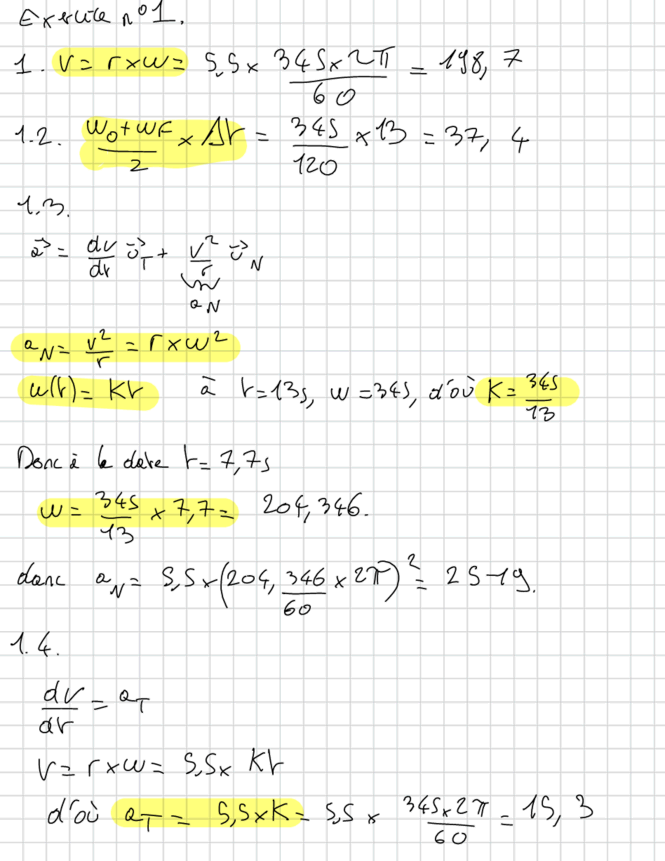 Exercice n°1.
1. v = r×w = 5,5 × 345×2π/60 = 198,7
1.2. (w₀+wF)/2 × Δt = 345/120 × 13 = 37,4
1.3.
a⃗ = dv/dt u⃗_T + v²/r u⃗_N
a_N
a_N = v²/r = r×w²
w(t) = Kt à t=13s, w=345, d'où K = 345/13
Donc à la date t=7,7s
w = 345/13 × 7,7 = 204,346.
donc a_N = 5,5×(204,346/60 × 2π)² = 2519.
1.4.
dv/dt = a_T
v = r×w = 5,5× Kt
d'où a_T = 5,5×K = 5,5 × 345×2π/60 = 15,3